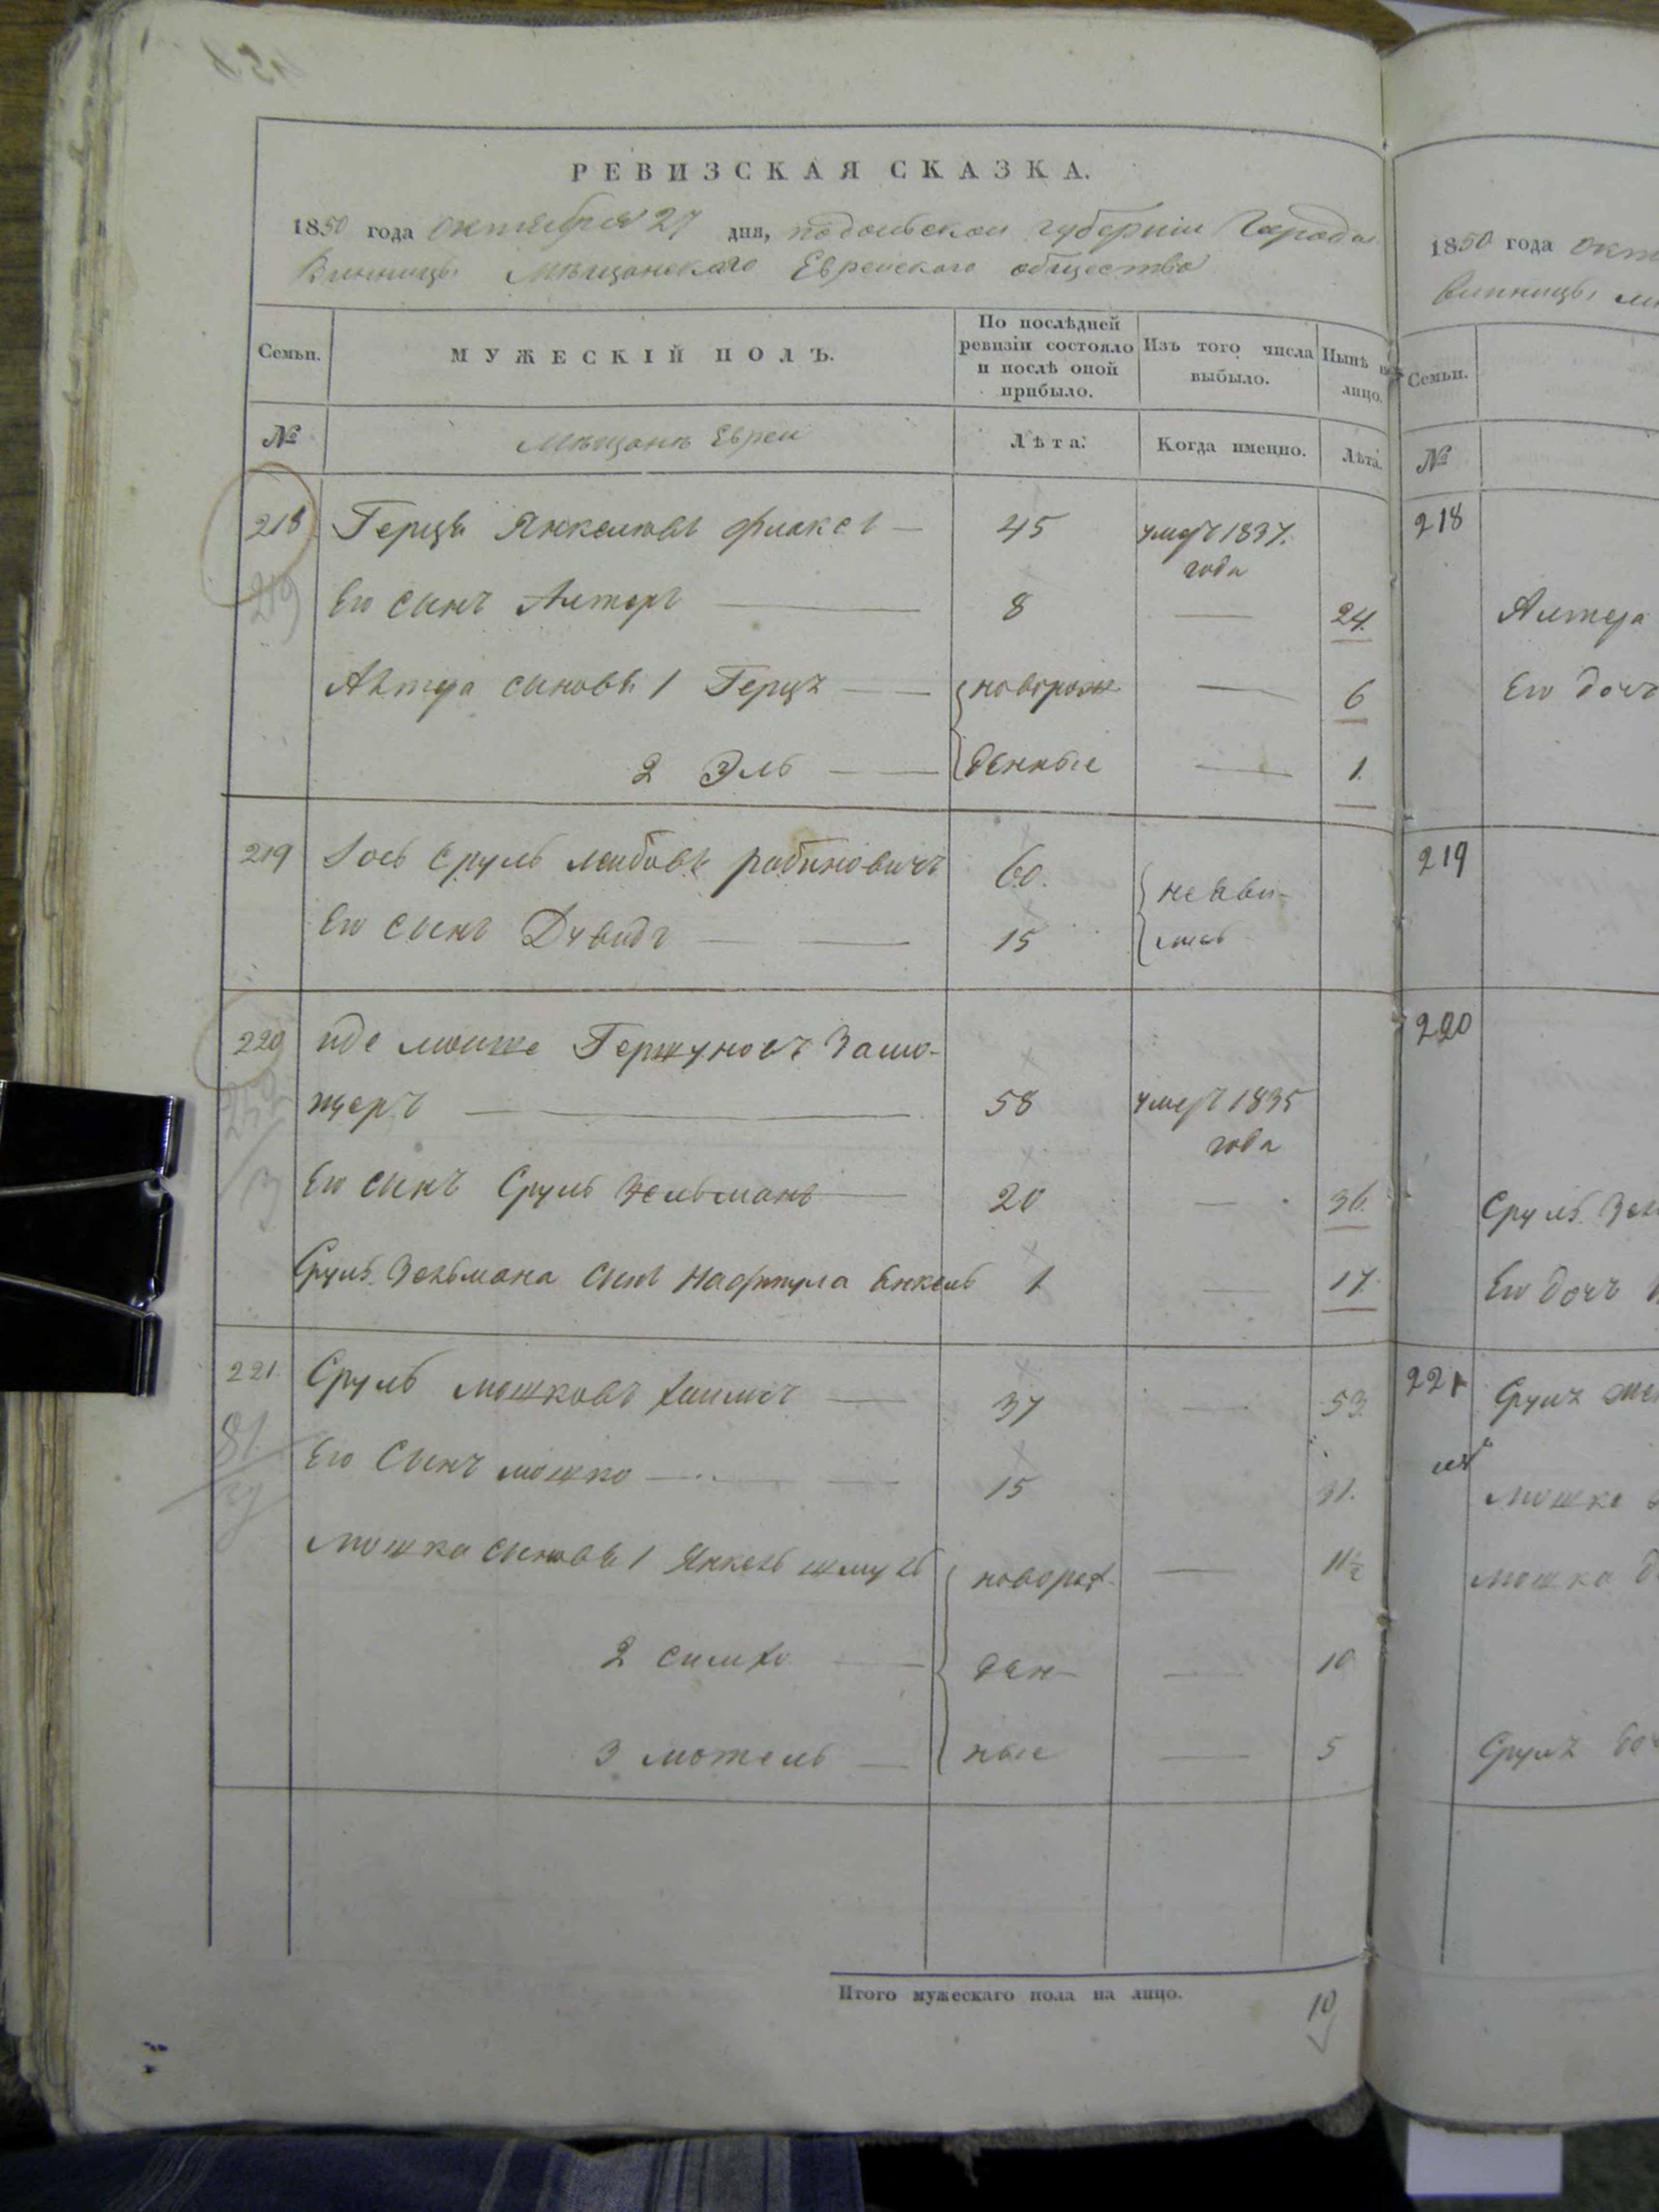 РЕВИЗСКАЯ СКАЗКА.
1850 года октября 27 дня, подольской губерніи Города
Винницы Мѣщанскаго Еврейского общества
Семьи.
МУЖЕСКІЙ ПОЛЪ.
По послѣдней ревизіи состояло и послѣ оной прибыло.
Изъ того числа выбыло.
Нынѣ на лицо.
№
Мѣщанъ Евреи
Лѣта.
Когда именно.
Лѣта.
218 Герцъ Янкелевъ 45 умеръ 1837. года
219
Его сынъ Алтеръ 8 24.
Алтера сыновья 1 Герцъ новорож 6
2 Эль денные 1.
219 Сруль Лейбовъ рабиновичъ 60.
Его сынъ Дувидъ 15 неяви-
лись
220 Гершуновъ Замо-
щеръ 58 умеръ 1835
года
Его сынъ Сруль Зельманъ 20 36.
Сруль Зельмана сынъ Нафтула Янкель 1 17.
221. Сруль Мошковъ 37 53.
81
Его Сынъ мошко 15 31.
Мошка сыновья 1 Янкель шмуль новорож- 11½
2 симхо ден- 10
3 мотель ные 5
Итого мужескаго пола на лицо. 10
1850 года окт
Винницы, м
Семьи.
№
218
Алтера
Его дочь
219
220
Сруль Зел
Его дочь
221 Сруля жен
Мошка
Мошка д
Сруля